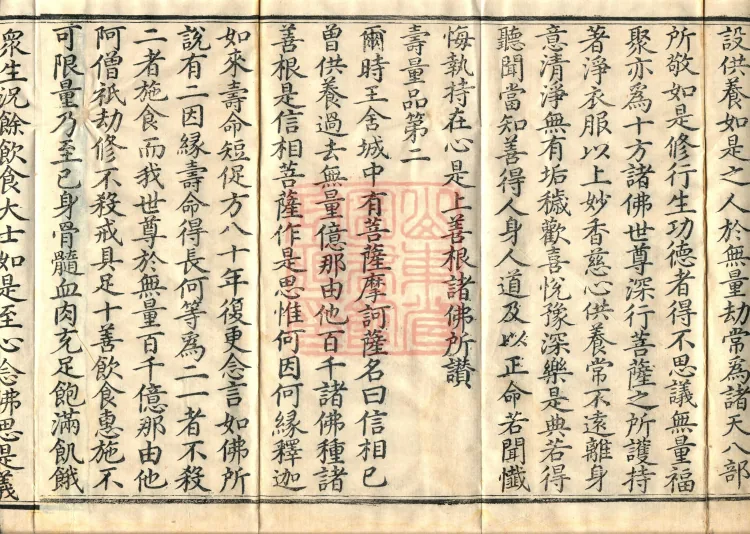 設供養如是之人於無量劫常為諸天八部
所敬如是修行生功德者得不思議無量福
聚亦為十方諸佛世尊深行菩薩之所護持
著淨衣服以上妙香慈心供養常不遠離身
意清淨無有垢穢歡喜悅豫深樂是典若得
聽聞當知善得人身人道及以正命若聞懺
悔執持在心是上善根諸佛所讚
壽量品第二
爾時王舍城中有菩薩摩訶薩名曰信相已
曾供養過去無量億那由他百千諸佛種諸
善根是信相菩薩作是思惟何因何緣釋迦
如來壽命短促方八十年復更念言如佛所
說有二因緣壽命得長何等為二一者不殺
二者施食而我世尊於無量百千億那由他
阿僧祇劫修不殺戒具足十善飲食惠施不
可限量乃至己身骨髓血肉充足飽滿飢餓
眾生況餘飲食大士如是至心念佛思是義